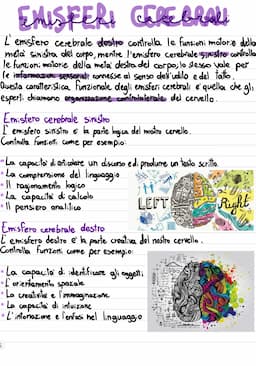 EMISFERI CEREBRALI
L'emisfero cerebrale destro controlla le funzioni motorie della
metà sinistra del corpo, mentre l'emisfero cerebrale sinistro controlla
le funzioni motorie della metà destra del corpo; lo stesso vale per
le informazioni sensoriali connesse al senso dell'udito e del tatto.
Questa caratteristica funzionale degli emisferi cerebrali è quella che gli
esperti chiamano organizzazione controlaterale del cervello.
Emisfero cerebrale sinistro
L'emisfero sinistro è la parte logica del nostro cervello.
Controlla funzioni come per esempio:
• La capacità di articolare un discorso e di produrre un testo scritto
• La comprensione del linguaggio
• Il ragionamento logico
• La capacità di calcolo
• Il pensiero analitico
LEFT
Right
Emisfero cerebrale destro
L'emisfero destro è la parte creativa del nostro cervello.
Controlla funzioni come per esempio:
• La capacità di identificare gli oggetti
• L'orientamento spaziale
• La creatività e l'immaginazione
• La capacità di intuizione
• L'intonazione e l'enfasi nel linguaggio